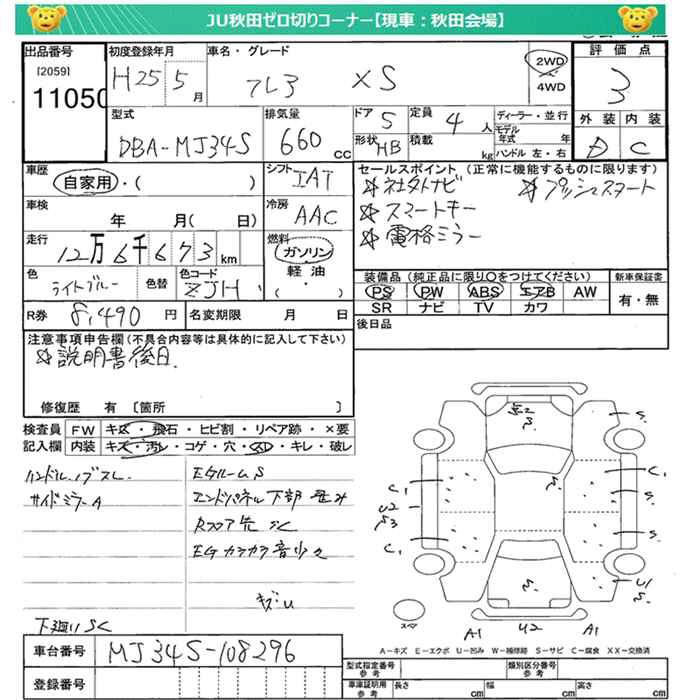 JU秋田ゼロ切りコーナー【現車：秋田会場】
出品番号 初度登録年月 車名・グレード 評価点
[2059]
11050 H25 5月 フレア XS 2WD 4WD 3
型式 排気量 ドア 定員 ディーラー・並行 外装 内装
DBA-MJ34S 660cc 5 4人 モデル年式 年 D C
形状 HB 積載 kg ハンドル 左・右
車歴 シフト セールスポイント（正常に機能するものに限ります）
自家用・( ) IAT ☆社外ナビ ☆プッシュスタート
車検 年 月( 日) 冷房 AAC ☆スマートキー
☆電格ミラー
走行 12万6千673km 燃料 ガソリン
軽油・( )
色 色替 色コード 装備品（純正品に限り〇をつけてください） 新車保証書
ライトブルー ZJH PS PW ABS エアB AW 有・無
SR ナビ TV カワ
R券 8,490円 名変期限 月 日 後日品
注意事項申告欄（不具合内容等は具体的に記入して下さい）
☆説明書後日.
修復歴 有〔箇所 〕
検査員 FW キズ・飛石・ヒビ割・リペア跡・×要
記入欄 内装 キズ・汚レ・コゲ・穴・スレ・キレ・破レ
ハンドル、ノブスレ EGルームS
サイドミラーA エンドパネル下部歪み
Rフロア先SC
EGカラカラ音少々
キズU
下廻りSC
S
C1 C1
U2 S
S3 S
C1 C1
U1
S
スペア A1 U2 A1
A－キズ E－エクボ U－凹み W－補修跡 S－サビ C－腐食 XX－交換済
車台番号 MJ34S-108296 型式指定番号 参考 類別区分番号 参考
登録番号 車庫証明用 参考 長さ cm 幅 cm 高さ cm